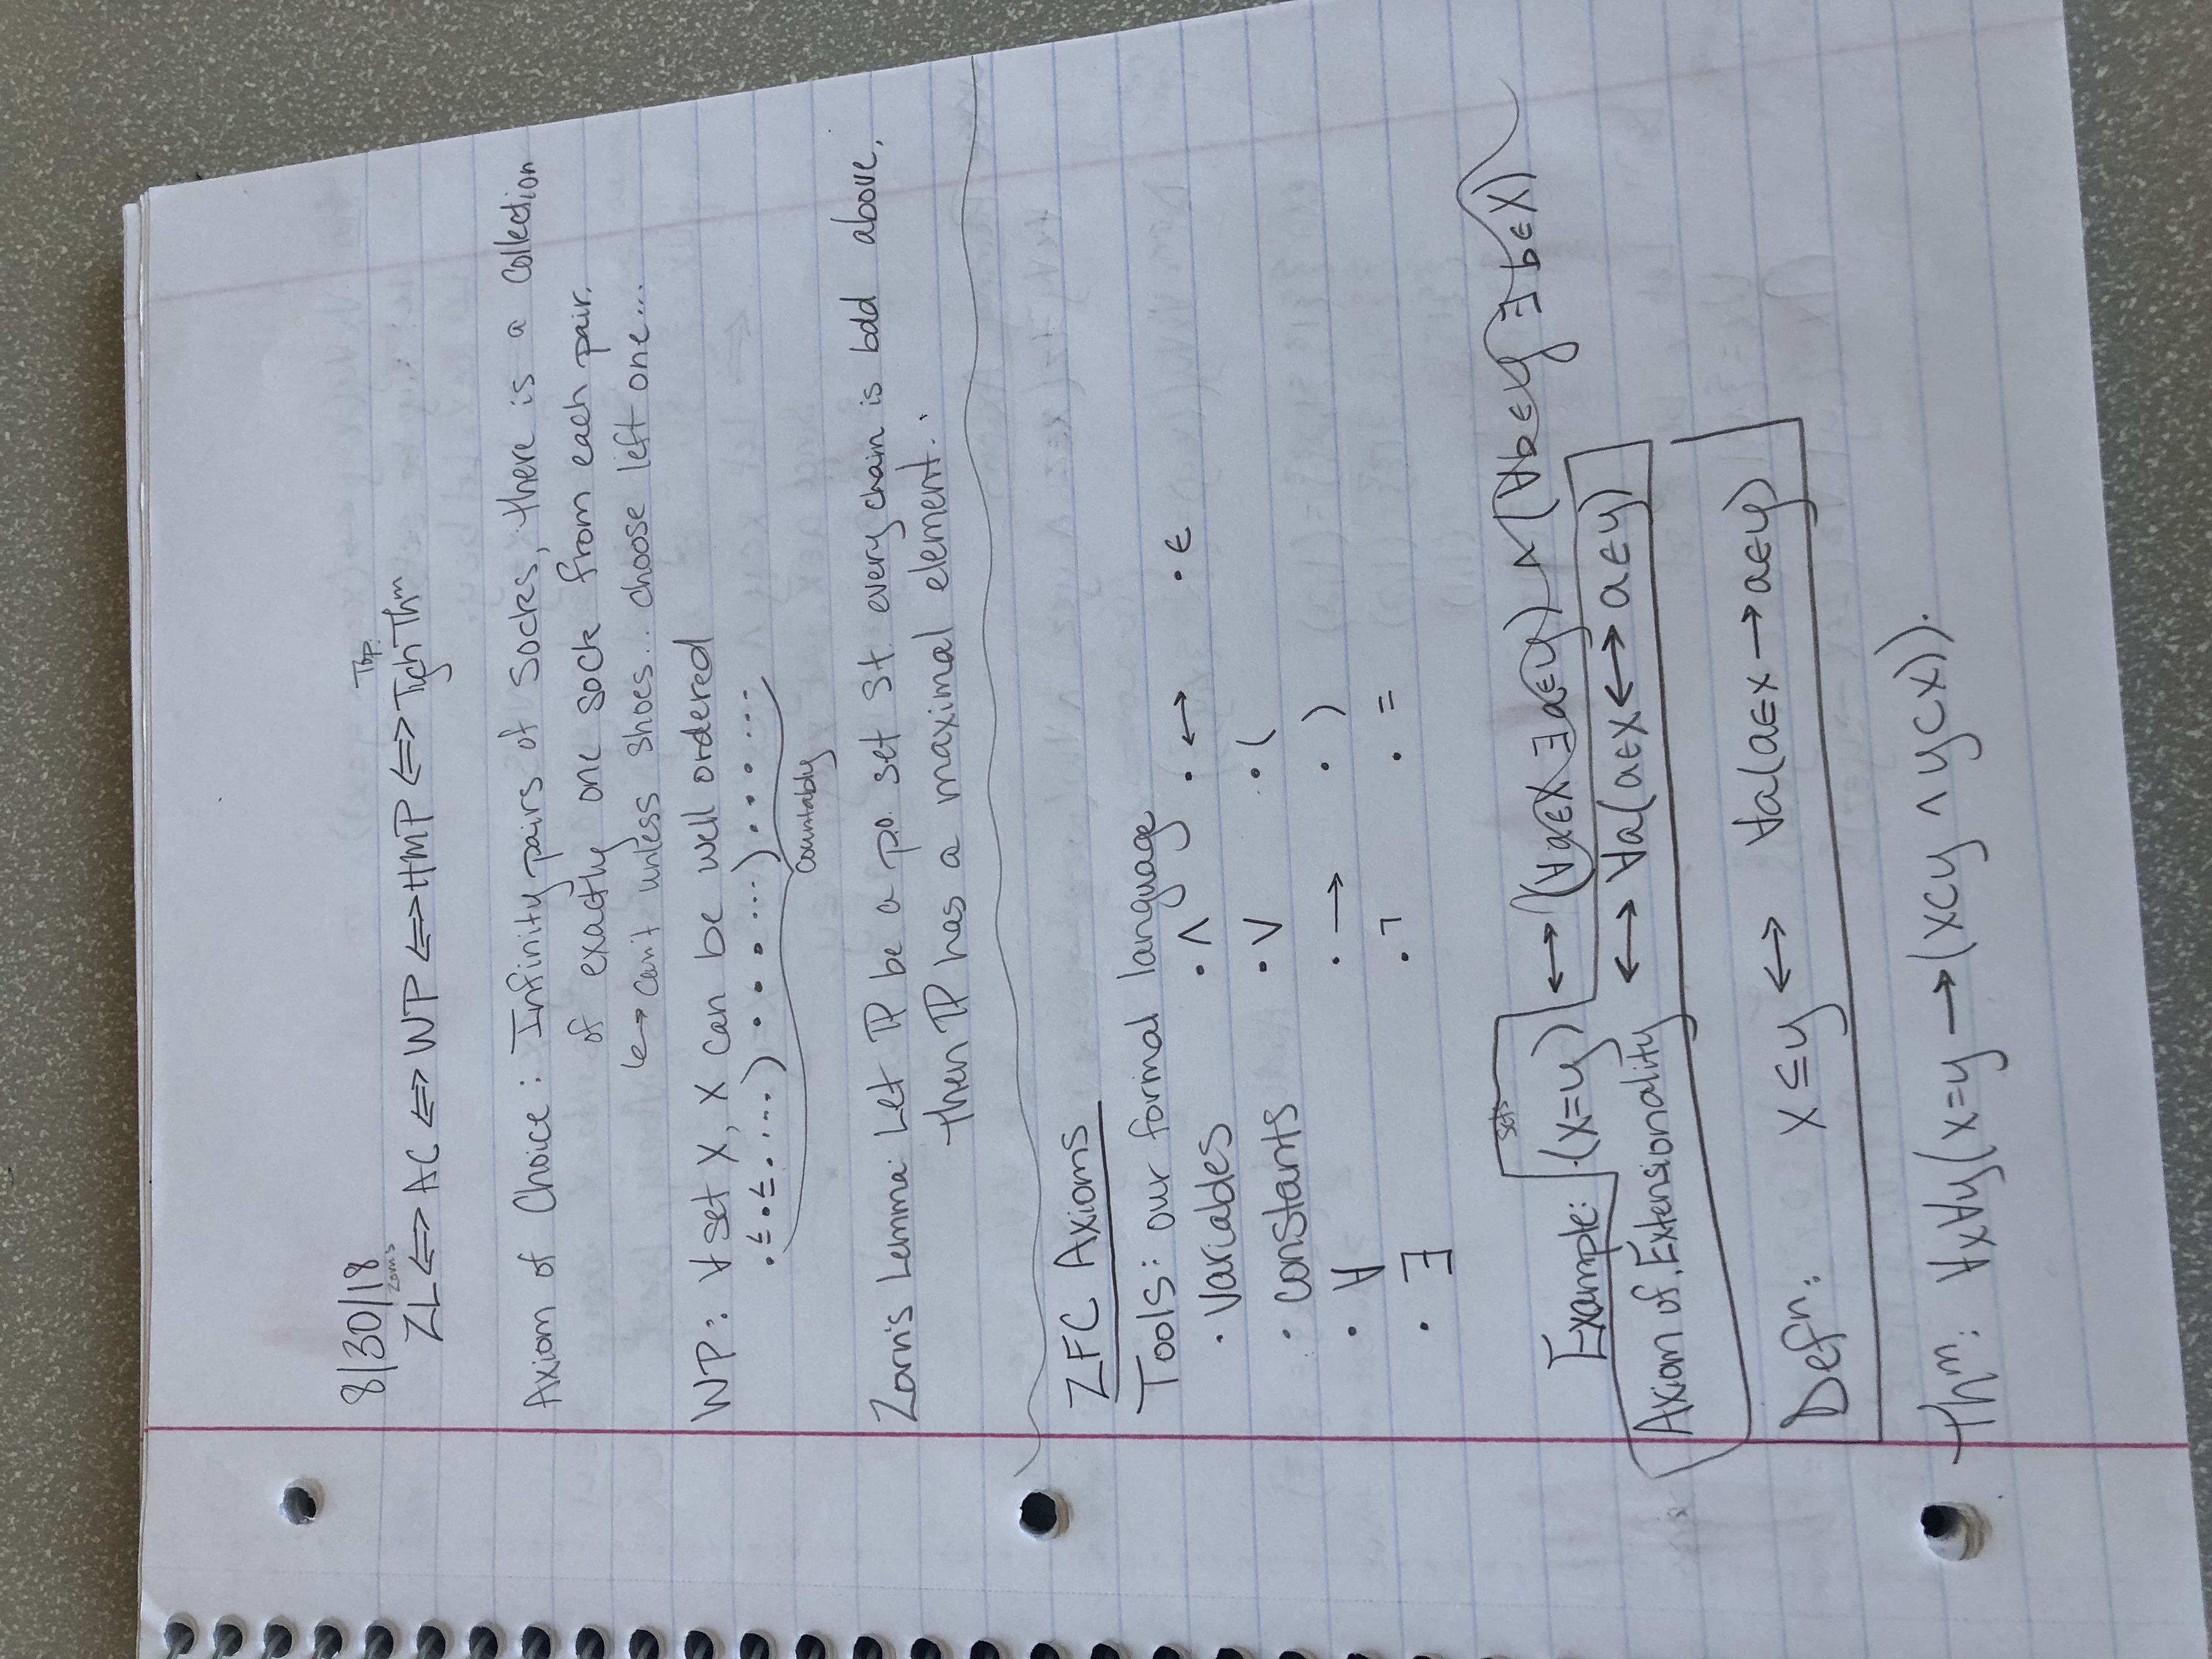 8/30/18
Zorn's
Top.
ZL ⟺ AC ⟺ WP ⟺ HMP ⟺ Tych Thm
Axiom of Choice: Infinity pairs of socks, there is a collection
of exactly one sock from each pair.
↳ can't unless shoes... choose left one...
WP: ∀ set X, X can be well ordered
. ≤ . ≤ . ...) . . . ...) . . . ...
Countably
Zorn's Lemma: Let ℙ be a p.o. set st. every chain is bdd above,
then ℙ has a maximal element.
ZFC Axioms
Tools: our formal language
· Variables · ∧ · ↔ · ∈
· constants · ∨ · (
· ∀ · → · )
· ∃ · ¬ · =
sets
Example: (x=y) ↔ (∀a∈X ∃a∈y) ∧ (∀b∈y ∃ b∈X)
Axiom of Extensionality ↔ ∀a(a∈x ↔ a∈y)
Defⁿ: x ⊆ y ↔ ∀a(a∈x → a∈y)
Thm: ∀x∀y(x=y → (x⊂y ∧ y⊂x)).